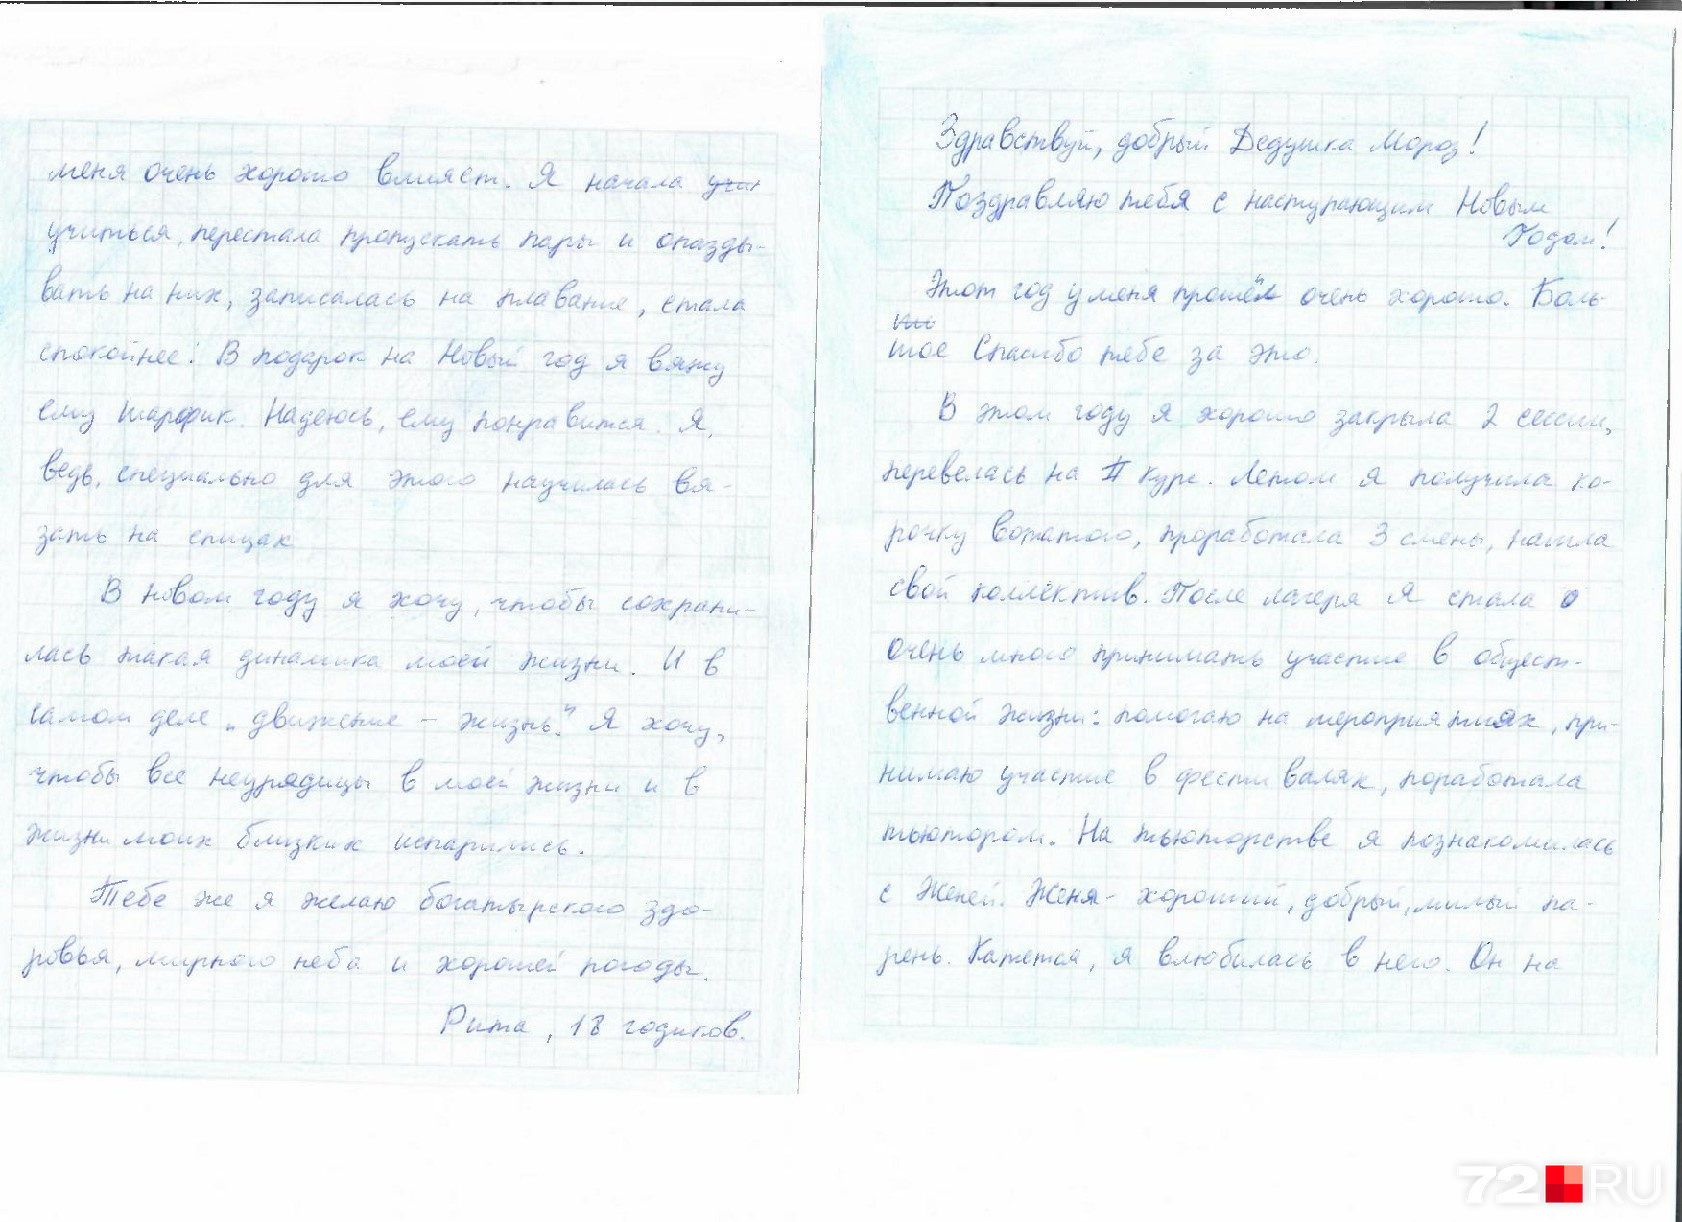 Здравствуй, добрый Дедушка Мороз!
Поздравляю тебя с наступающим Новым
Годом!
Этот год у меня прошёл очень хорошо. Боль-
шое Спасибо тебе за это.
В этом году я хорошо закрыла 2 сессии,
перевелась на II курс. Летом я получила ко-
рочку вожатого, проработала 3 смены, нашла
свой коллектив. После лагеря я стала о
очень много принимать участие в общест-
венной жизни: помогаю на мероприятиях, при-
нимаю участие в фестивалях, поработала
тьютором. На тьюторстве я познакомилась
с Женей. Женя - хороший, добрый, милый па-
рень. Кажется, я влюбилась в него. Он на
меня очень хорошо влияет. Я начала учит
учиться, перестала пропускать пары и опазды-
вать на них, записалась на плавание, стала
спокойнее! В подарок на Новый год я вяжу
ему шарфик. Надеюсь, ему понравится. Я,
ведь, специально для этого научилась вя-
зать на спицах
В новом году я хочу, чтобы сохрани-
лась такая динамика моей жизни. И в
самом деле „движение - жизнь". Я хочу,
чтобы все неурядицы в моей жизни и в
жизни моих близких испарились.
Тебе же я желаю богатырского здо-
ровья, мирного неба и хорошей погоды.
Рита, 18 годиков.
72.RU